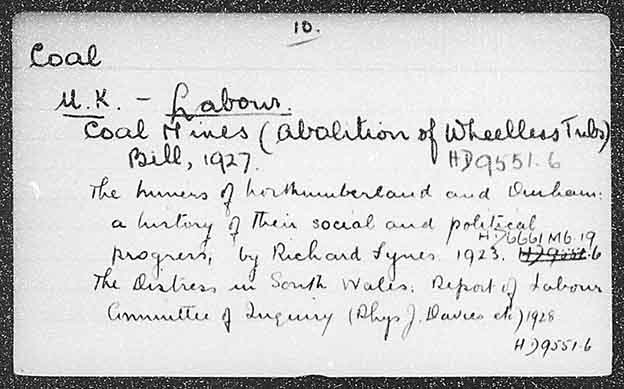 10.
Coal
U.K. - Labour.
Coal Mines (Abolition of Wheelless Tubs)
Bill, 1927. HD9551.6
The miners of Northumberland and Durham:
a history of their social and political
progress, by Richard Fynes. 1923. HD6661M6.19 HD9551.6
The Distress in South Wales: Report of Labour
Committee of Inquiry (Rhys J. Davies etc) 1928
HD9551.6